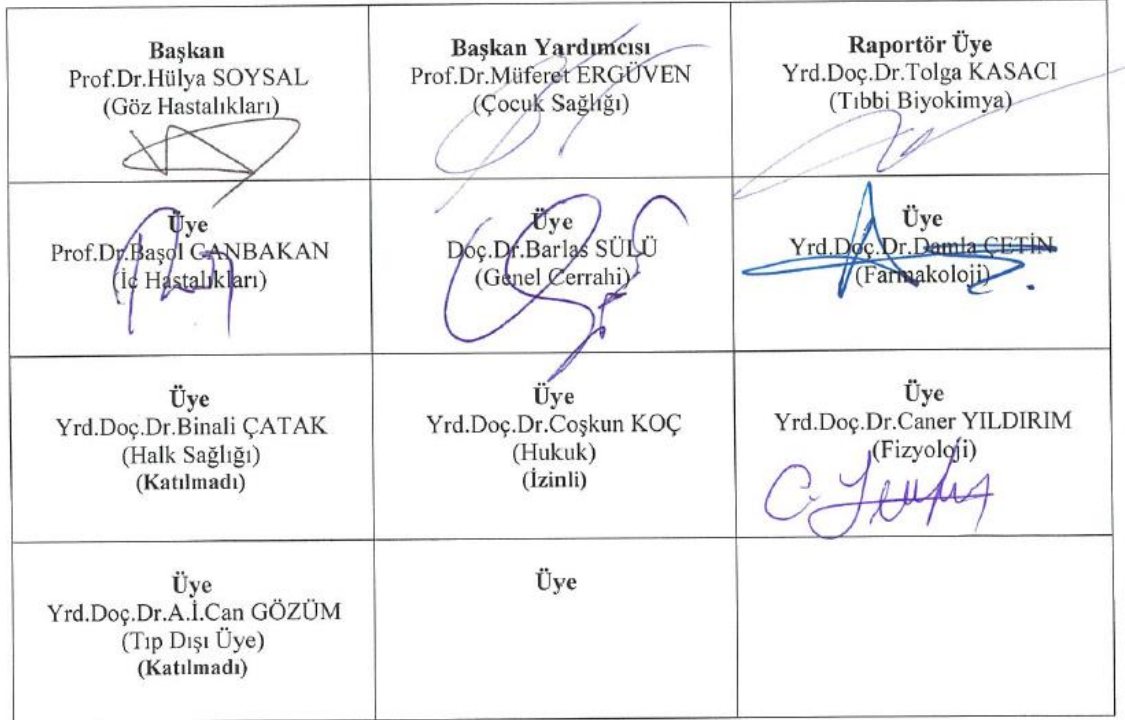 Başkan
Prof.Dr.Hülya SOYSAL
(Göz Hastalıkları)
Başkan Yardımcısı
Prof.Dr.Müferet ERGÜVEN
(Çocuk Sağlığı)
Raportör Üye
Yrd.Doç.Dr.Tolga KASACI
(Tıbbi Biyokimya)
Üye
Prof.Dr.Başol CANBAKAN
(İç Hastalıkları)
Üye
Doç.Dr.Barlas SÜLÜ
(Genel Cerrahi)
Üye
Yrd.Doç.Dr.Damla ÇETİN
(Farmakoloji)
Üye
Yrd.Doç.Dr.Binali ÇATAK
(Halk Sağlığı)
(Katılmadı)
Üye
Yrd.Doç.Dr.Coşkun KOÇ
(Hukuk)
(İzinli)
Üye
Yrd.Doç.Dr.Caner YILDIRIM
(Fizyoloji)
Üye
Yrd.Doç.Dr.A.İ.Can GÖZÜM
(Tıp Dışı Üye)
(Katılmadı)
Üye